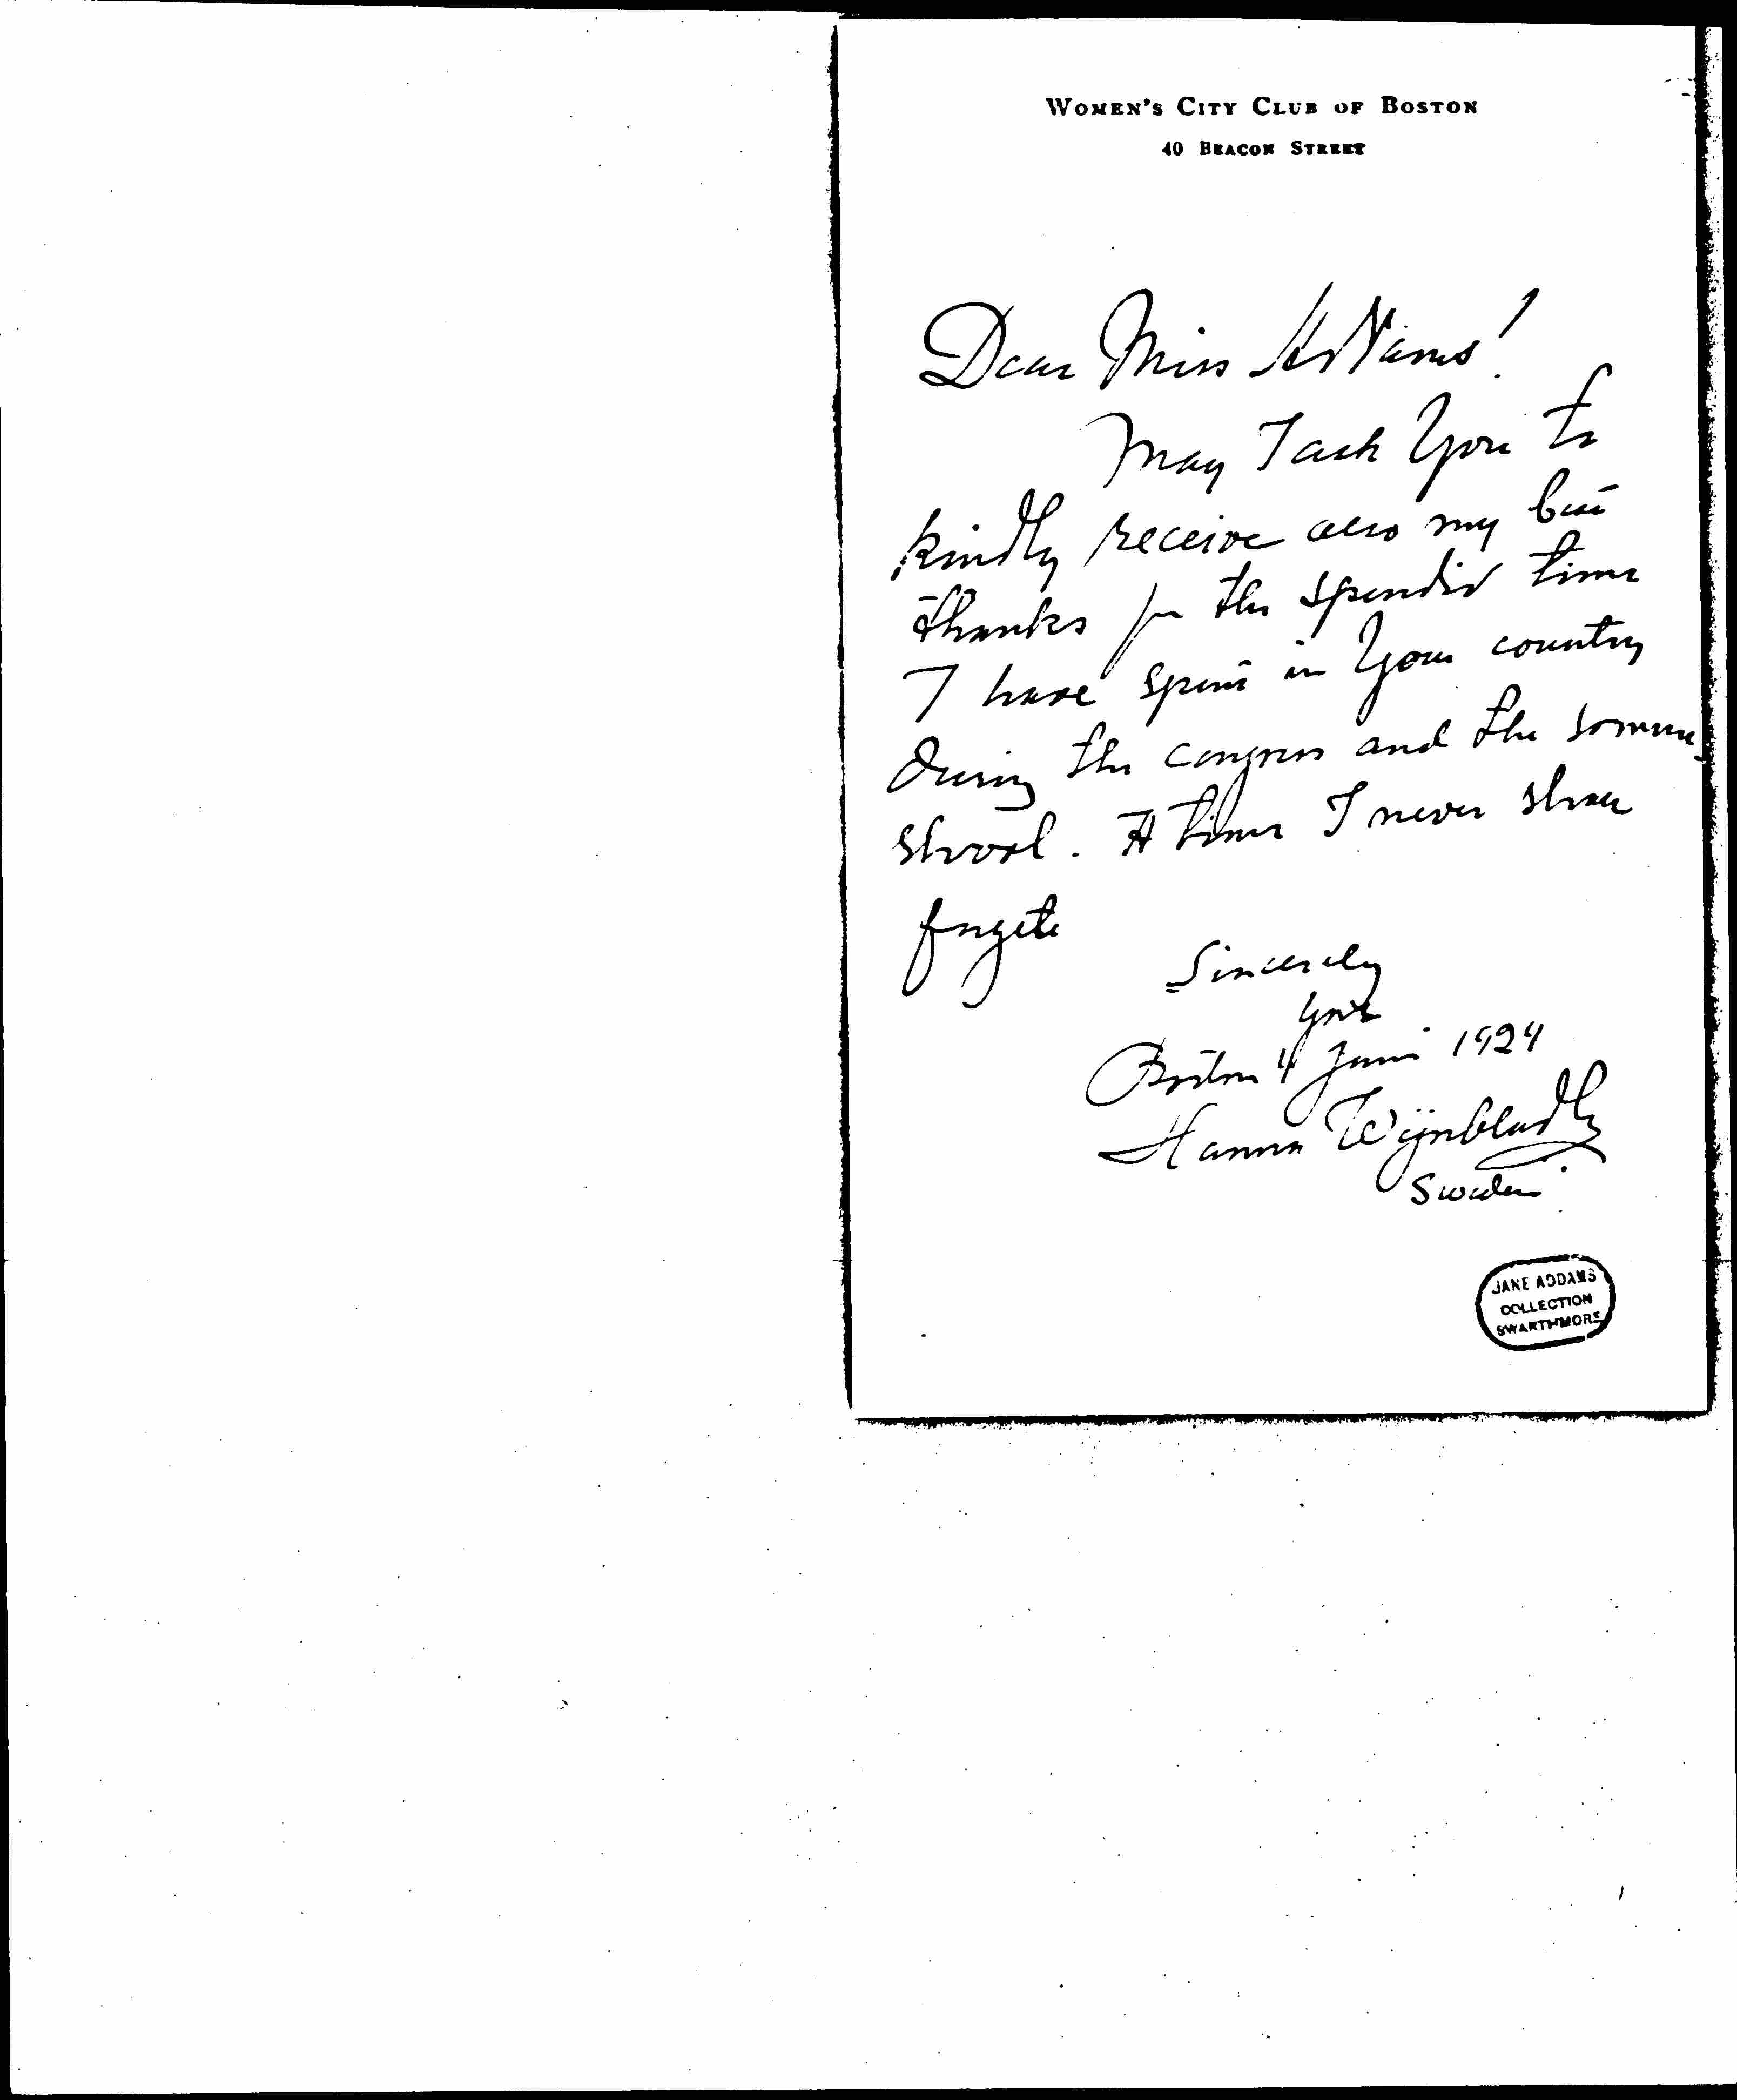 WOMEN'S CITY CLUB OF BOSTON
40 BEACON STREET
Dear Miss Addams!
May I ask You to
kindly receive also my best
thanks for the spendid time
I have spent in Your country
during the congress and the sommer
shool. A time I never shall
forgete
Sincerely
Boston 4 Juni 1924
Hanna
Sweden
JANE ADDAMS
COLLECTION
SWARTHMORE